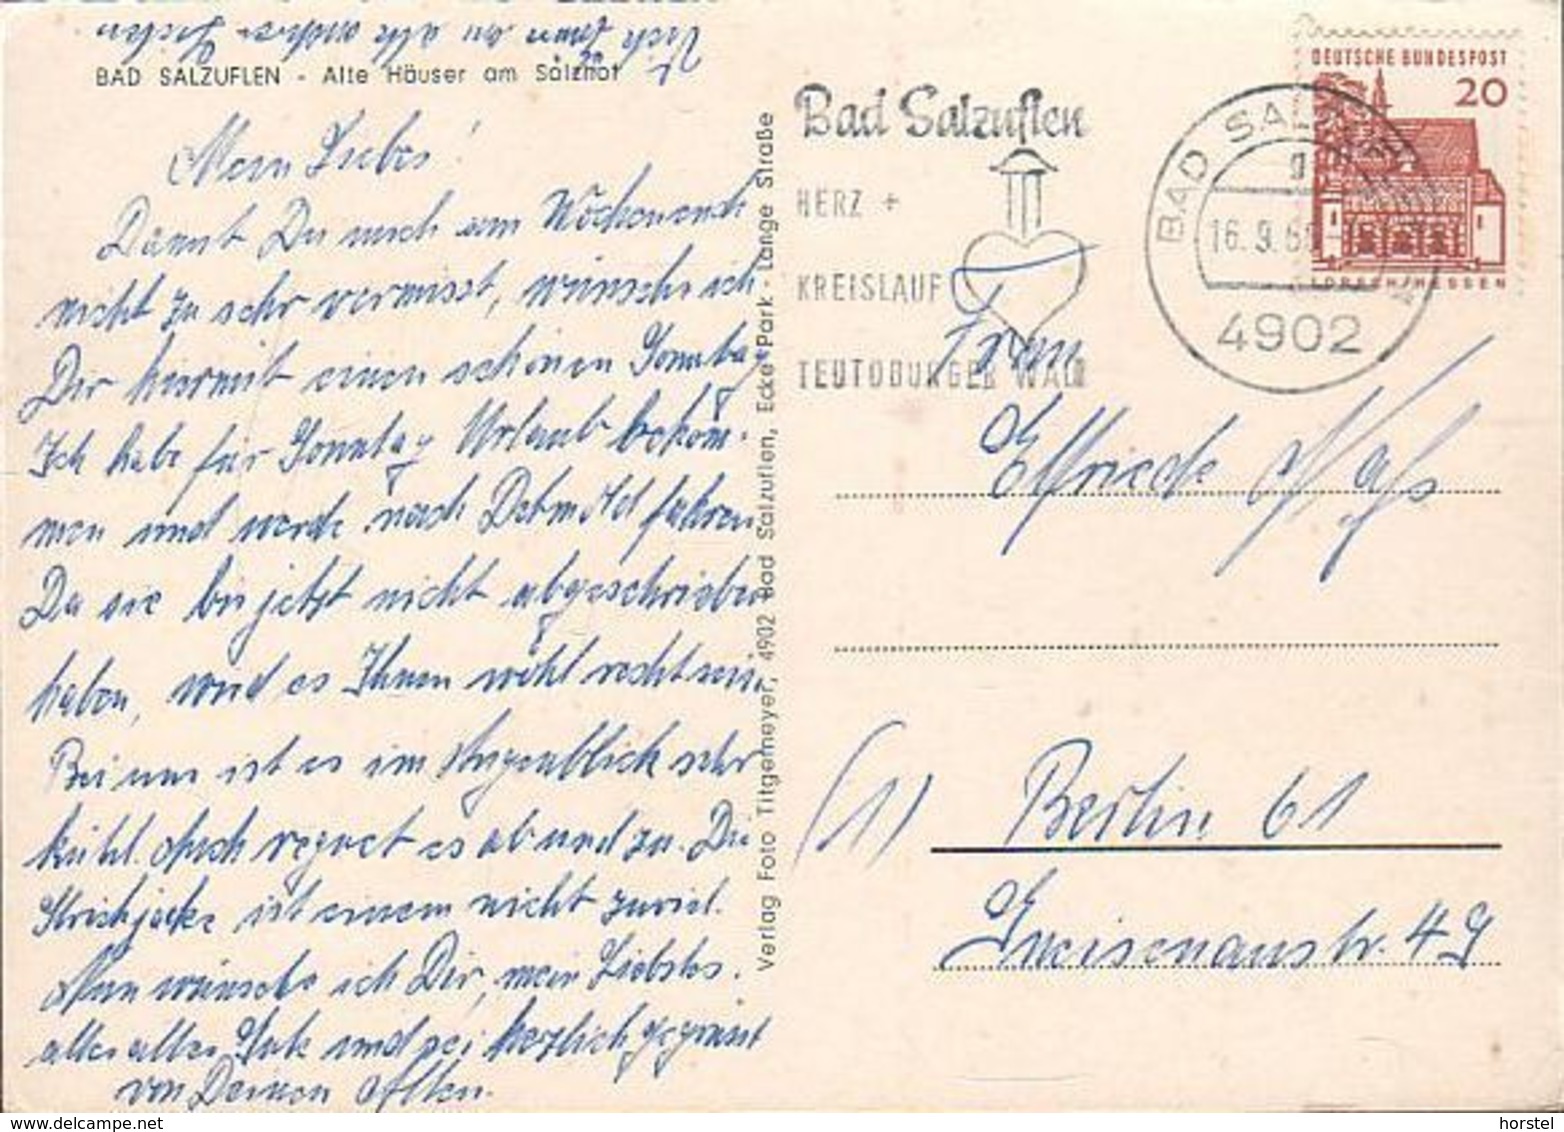 BAD SALZUFLEN - Alte Häuser am Salzhof
Mein Liebes!
Damit Du mich am Wochenende
nicht zu sehr vermisst, wünsche ich
Dir hiermit einen schönen Sonntag
Ich habe für Sonntag Urlaub bekom-
men und werde nach Detmold fahren
Da sie bis jetzt nicht abgeschrieben
haben, wird es Ihnen wohl recht sein.
Bei uns ist es im Augenblick sehr
kühl. Auch regnet es ab und zu. Die
Strickjacke ist einem nicht zuviel.
Nun wünsche ich Dir, mein Liebstes.
alles alles Gute und sei herzlich gegrüsst
von Deinem Alten.
Verlag Foto Titgemeyer, 4902 Bad Salzuflen, Ecke Park - Lange Straße
Bad Salzuflen
HERZ +
KREISLAUF
TEUTOBURGER WALD
BAD SALZUFLEN
16.9.6
4902
DEUTSCHE BUNDESPOST
20
LORSCH/HESSEN
Frau
Elfriede
(1) Berlin 61
Gneisenaustr. 49
horstel